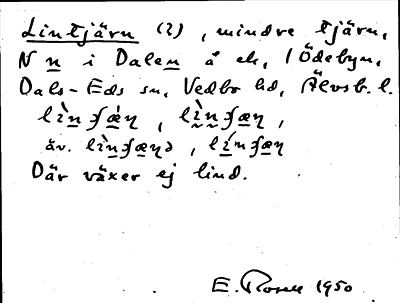 Lintjärn (2), mindre tjärn,
N n i Dalen å ek. 1 Ödebyn,
Dals-Eds sn, Vedbo hd, Älvsb. l.
lìnʃæ̀ŋ, lìnʃæŋ,
äv. lìnʃæŋə, línʃæŋ
Där växer ej lind.
E. Rosell 1950